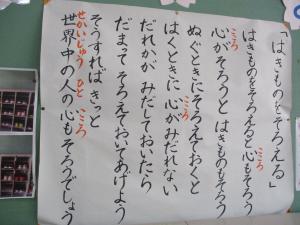 「はきものをそろえる」
はきものをそろえると心もそろう
こころ
心がそろうと はきものもそろう
こころ
ぬぐときに そろえておくと
はくときに 心がみだれない
こころ
だれかが みだしておいたら
だまって そろえておいてあげよう
そうすれば きっと
世界中の人の心もそろうでしょう
せかいじゅう ひと こころ